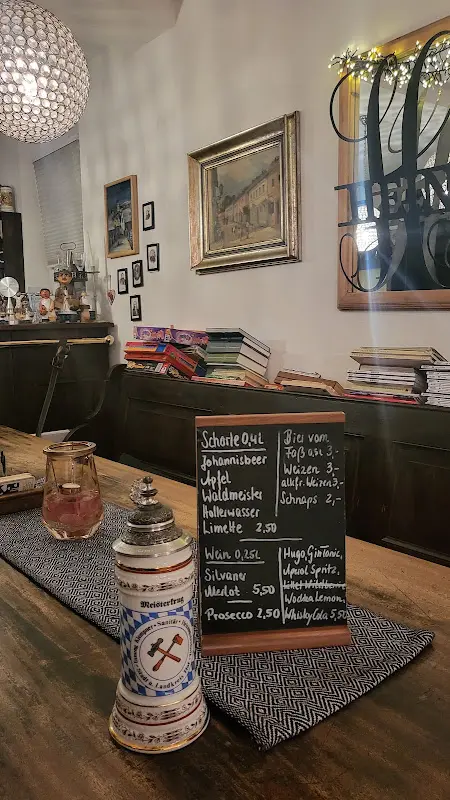 Schorle 0,4L
Johannisbeer
Apfel
Waldmeister
Hollerwasser
Limette 2,50
Wein 0,25L
Silvaner
Merlot 5,50
Prosecco 2,50
Bier vom
Faß 0,5L 3,-
Weizen 3,-
alkfr. Weizen 3,-
Schnaps 2,-
Hugo, GinTonic,
Aperol Spritz,
Wodka Lemon,
Whisky Cola 5,50
Meisterkrug